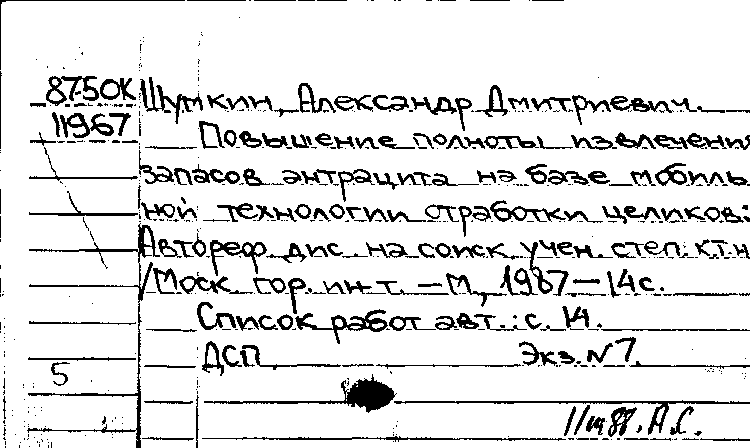 87-50К Шумкин, Александр Дмитриевич.
11967 Повышение полноты извлечения
запасов антрацита на базе мобиль
ной технологии отработки целиков:
Автореф. дис. на соиск. учен. степ. к.т.н
/Моск. гор. ин-т. – М., 1987 – 14 с.
Список работ авт.: с. 14.
ДСП. Экз. N 7.
5
А.С.